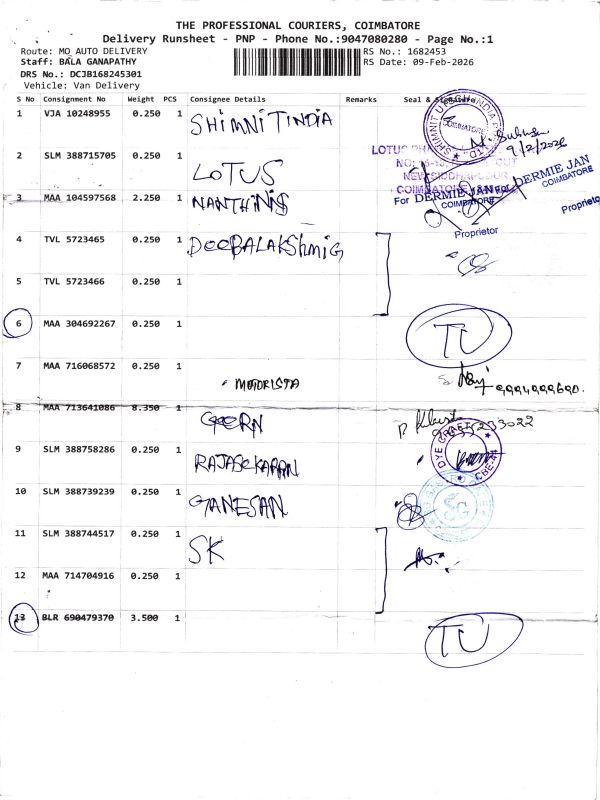 THE PROFESSIONAL COURIERS, COIMBATORE
Delivery Runsheet - PNP - Phone No.:9047080280 - Page No.:1
Route: MO AUTO DELIVERY
RS No.: 1682453
Staff: BALA GANAPATHY
RS Date: 09-Feb-2026
DRS No.: DCJB168245301
Vehicle: Van Delivery
S No Consignment No Weight PCS Consignee Details Remarks Seal & Signature
1 VJA 10248955 0.250 1 SHIMNIT INDIA
COIMBATORE
9/2/2026
2 SLM 388715705 0.250 1 LOTUS
LOTUS
NEW SIDDHAPUDUR
COIMBATORE
3 MAA 104597568 2.250 1 NANTHINI
For DERMIE JAN
COIMBATORE
DERMIE JAN
COIMBATORE
Proprietor
Proprietor
4 TVL 5723465 0.250 1 DEEBALAKSHMIG
5 TVL 5723466 0.250 1
6 MAA 304692267 0.250 1 TU
7 MAA 716068572 0.250 1 MOTORISTA
8 MAA 713641086 8.350 1
9 SLM 388758286 0.250 1 RAJASEKARAN
10 SLM 388739239 0.250 1 GANESAN
11 SLM 388744517 0.250 1 SK
12 MAA 714704916 0.250 1
13 BLR 690479370 3.500 1 TU